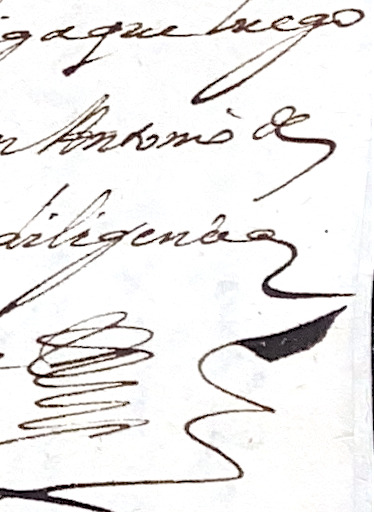 que luego
Antonio de
diligencia